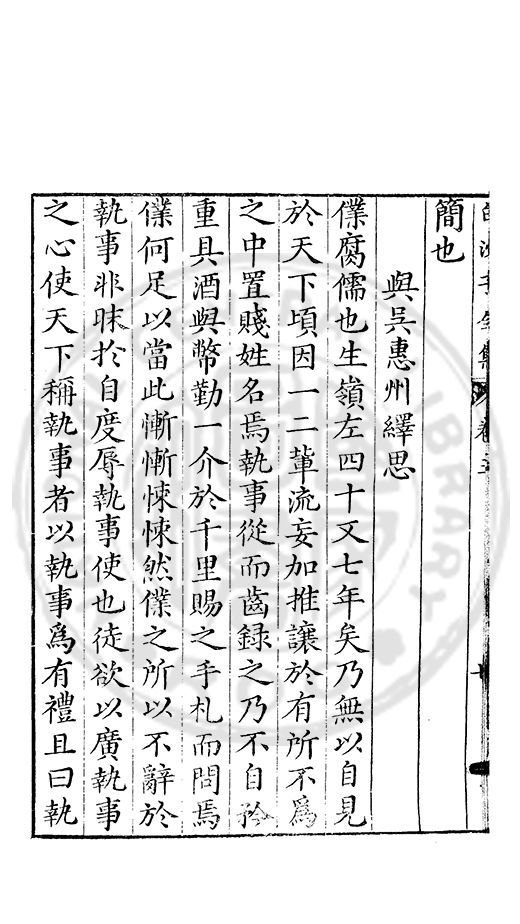 白沙子全集 卷五
簡也
與吳惠州繹思
僕腐儒也生嶺左四十又七年矣乃無以自見
於天下頃因一二輩流妄加推讓於有所不爲
之中置賤姓名焉執事從而齒錄之乃不自矜
重具酒與幣勤一介於千里賜之手札而問焉
僕何足以當此慚慚悚悚然僕之所以不辭於
執事非昧於自度辱執事使也徒欲以廣執事
之心使天下稱執事者以執事爲有禮且曰執
LIBRARY